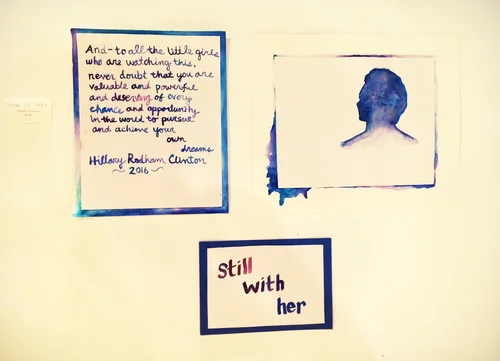 And - to all the little girls
who are watching this,
never doubt that you are
valuable and powerful
and deserving of every
chance and opportunity
in the world to pursue
and achieve your
own
dreams
Hillary Rodham Clinton
~ 2016 ~
still
with
her